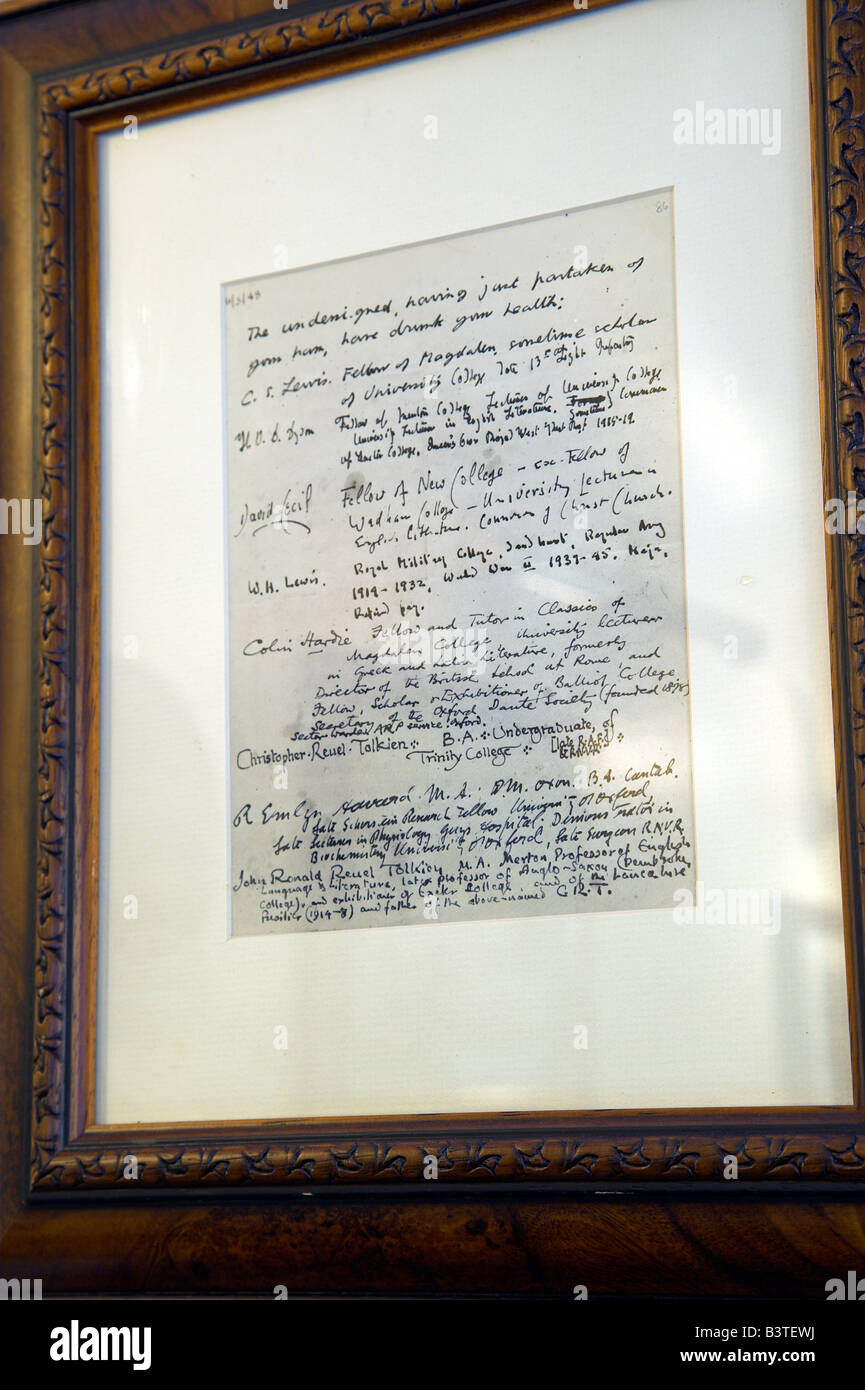 86
The undersigned, having just partaken of
your ham, have drunk your health:
C. S. Lewis. Fellow of Magdalen, sometime scholar
of University College, late 13th Light Infantry
H. V. D. Dyson Fellow of Merton College, Lecturer of University College
University Lecturer in English Literature, Sometime Commoner
of Exeter College, Queen's Own Royal West Kent Regt 1915-19.
David Cecil Fellow of New College - ex-Fellow of
Wadham College - University Lecturer in
English Literature. Commoner of Christ Church.
W. H. Lewis. Royal Military College, Sandhurst, Regular Army
1914-1932, World War II 1939-45. Major,
Retired pay.
Colin Hardie Fellow and Tutor in Classics of
Magdalen College University lecturer
in Greek and Latin Literature, formerly
Director of the British School at Rome, and
Fellow, Scholar & Exhibitioner of Balliol College
Secretary of the Oxford Dante Society (founded 1876)
Sector Warden A.R.P. service Oxford.
Christopher Reuel Tolkien B.A. Undergraduate, of
Trinity College late R.A.F.
R Emlyn Havard. M.A. DM. Oxon. B.A. Cantab.
late Research Fellow University of Oxford,
late Lecturer in Physiology Guys Hospital. Demonstrator in
Biochemistry University of Oxford, late Surgeon R.N.V.R.
John Ronald Reuel Tolkien M.A. Merton Professor of English
Language & Literature, late professor of Anglo-Saxon (Pembroke
College), and exhibitioner of Exeter College and of the Lancashire
Fusiliers (1914-8) and father of the above-named C.R.T.
alamy
Image ID: B3TEWJ
www.alamy.com